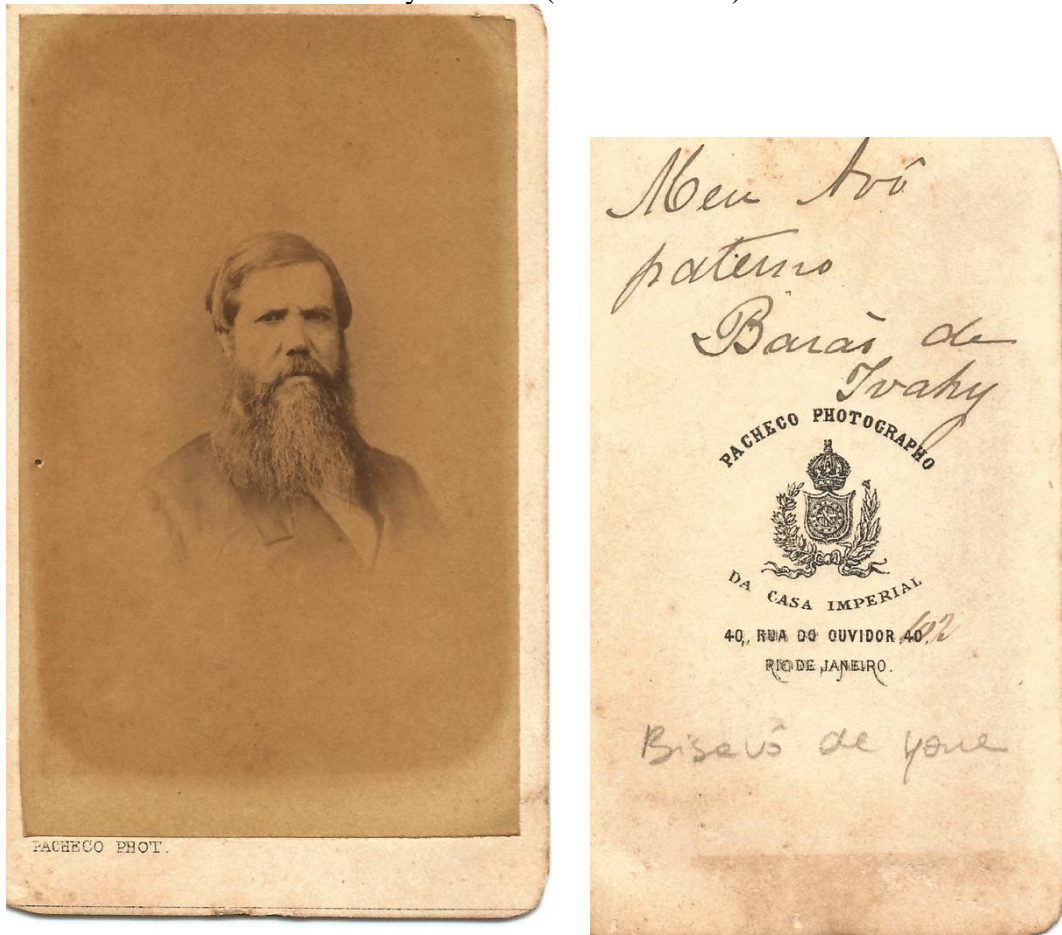 PACHECO PHOT.
Meu Avô
paterno
Barão de
Ivahy
PACHECO PHOTOGRAPHO
DA CASA IMPERIAL
40, RUA DO OUVIDOR, 40. 102
RIO DE JANEIRO.
Bisavô de Yone